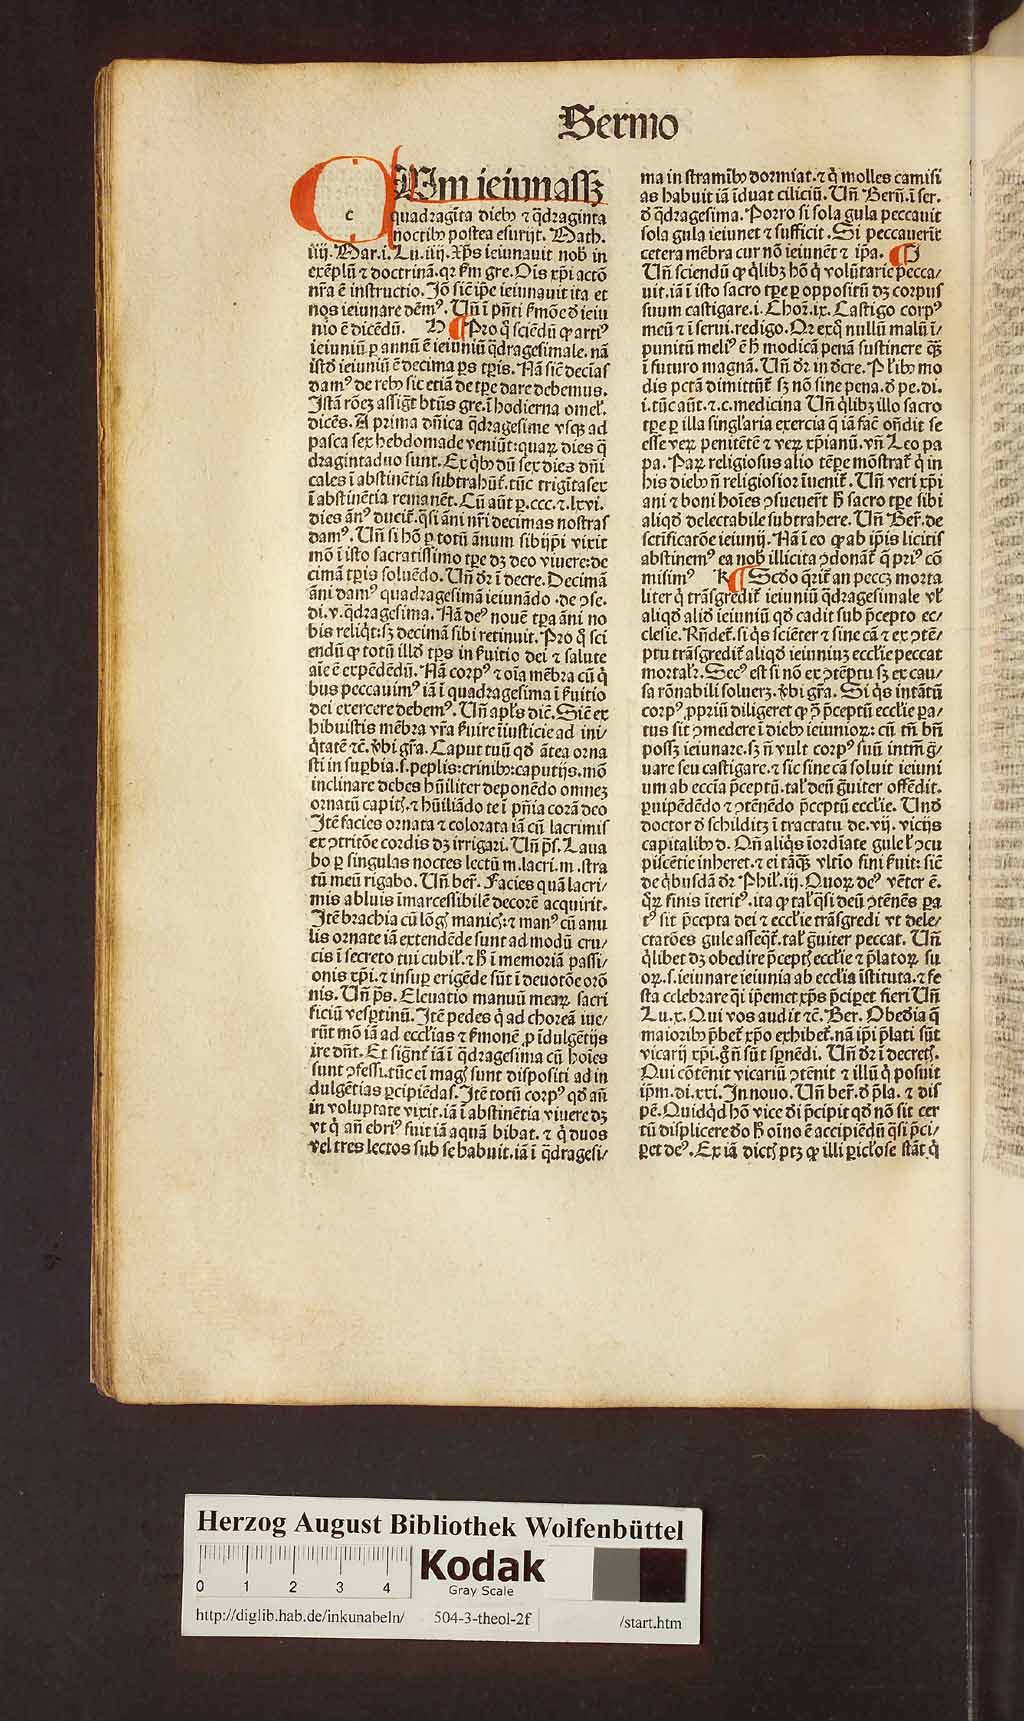 Sermo
CUm ieiunassꝫ
c
quadragīta dieb⁹ ⁊ q̄draginta
noctib⁹ postea esurijt. Math.
iiij. Mar.i. Lu.iiij. Xp̄s ieiunauit nob̄ in
exēplū ⁊ doctrinā. qꝛ ẜm gre. Oīs xp̄i actō
nr̄a ē instructio. Jō sic̄ ip̄e ieiunauit ita et
nos ieiunare dēm⁹. Un̄ ī pn̄ti ẜmōe d̄ ieiu
nio ē dicēdū. H ¶ Pro q̄ sciēdū ꝙ arti⁹
ieiuniū ꝑ annū ē ieiuniū q̄dragesimale. nā
istd̄ ieiuniū ē decima ꝑs tꝑis. Nā sic̄ decīas
dam⁹ de reb⁹ sic etiā de tꝑe dare debemus.
Jstā rōeꝫ assigt̄ bt̄us gre. ī hodierna omel̄.
dicēs. A prima dn̄ica q̄dragesime vsqꝫ ad
pasca sex hebdomade veniūt: quaꝝ dies q̄
dragintaduo sunt. Ex q̄b⁹ dū sex dies dn̄i
cales ī abstinētia subtrahūt̄. tūc trigīta sex
ī abstinētia remanēt. Cū aūt ꝑ .ccc. ⁊ .lxvi.
dies an̄⁹ ducit̄. q̄si āni nr̄i decimas nostras
dam⁹. Un̄ si hō ꝑ totū ānum sibijp̄i vixit
mō ī isto sacratissimo tꝑe dꝫ deo viuere: de
cimā tꝑis soluēdo. Un̄ dr̄ ī decre. Decimā
āni dam⁹ quadragesimā ieiunādo. de ꝯse.
di.v. q̄dragesima. Nā de⁹ nouē tꝑa āni no
bis reliq̄t: sꝫ decimā sibi retinuit. Pro q̄ sci
endū ꝙ totū illd̄ tꝑs in ẜuitio dei ⁊ salute
aīe ē expēdēdū. Nā corp⁹ ⁊ oīa mēbra cū q̄
bus peccauim⁹ iā ī quadragesima ī ẜuitio
dei exercere debem⁹. Un̄ apl̄s dic̄. Sic̄ ex
hibuistis mēbra vr̄a ẜuire īiusticie ad ini/
q̄tatē ⁊c̄. v̄bi gr̄a. Caput tuū qd̄ āntea orna
sti in suꝑbia. s. peplis: crinib⁹: caputijs. mō
inclinare debes hūiliter deponēdo omneꝫ
ornatū capitꝭ. ⁊ hūiliādo te ī pn̄ia corā deo
Jtē facies ornata ⁊ colorata iā cū lacrimis
ex ꝯtritōe cordis dꝫ irrigari. Un̄ ps̄. Laua
bo ꝑ singulas noctes lectū m. lacri. m. stra
tū meū rigabo. Un̄ ber̄. Facies quā lacri/
mis abluis īmarcessibilē decorē acquirit.
Jtē brachia cū lōgꝭ manicꝭ: ⁊ man⁹ cū anu
lis ornate iā extendēde sunt ad modū cru/
cis ī secreto tui cubil̄. ⁊ h̄ ī memoriā passi/
onis xp̄i. ⁊ insuꝑ erigēde sūt ī deuotōe orō
nis. Un̄ ps̄. Eleuatio manuū meaꝝ sacri
ficiū vesꝑtinū. Jtē pedes q̄ ad choreā iue/
rūt mō iā ad ecclīas ⁊ ẜmonē ꝓ īdulgētijs
ire dn̄t. Et signt̄ iā ī q̄dragesima cū hoīes
sunt ꝯfessi. tūc em̄ magꝭ sunt dispositi ad in
dulgētias ꝑcipiēdas. Jtē totū corp⁹ qd̄ an̄
in voluptate vixit. iā ī abstinētia viuere dꝫ
vt q̄ an̄ ebri⁹ fuit iā aquā bibat. ⁊ q̄ duos
vel tres lectos sub se habuit. iā ī q̄dragesi/
ma in stramīb⁹ dormiat. ⁊ q̄ molles camisi
as habuit iā īduat ciliciū. Un̄ Bern̄. ī ser.
d̄ q̄dragesima. Porro si sola gula peccauit
sola gula ieiunet ⁊ sufficit. Si peccauerūt
cetera mēbra cur nō ieiunēt ⁊ ip̄a. ¶ J
Un̄ sciendū ꝙ q̄libꝫ hō q̄ volūtarie pecca/
uit. iā ī isto sacro tꝑe ꝑ oppositū dꝫ corpus
suum castigare. i. Chor̄. ix. Castigo corp⁹
meū ⁊ ī serui. redigo. Qꝛ exq̄ nullū malū ī/
punitū meli⁹ ē h̄ modicā penā sustinere qꝫ
ī futuro magnā. Un̄ dr̄ in dcre. Pl̄ib⁹ mo
dis pctā dimittūt̄ sꝫ nō sine pena. d̄ pe. di.
i. tūc aūt. ⁊.c. medicina Un̄ q̄libꝫ illo sacro
tꝑe ꝑ illa singl̄aria exercia q̄ iā fac̄ on̄dit se
esse veꝝ penitētē ⁊ veꝝ xp̄ianū. vn̄ Leo pa
pa. Paꝝ religiosus alio tēꝑe mōstrat̄ q̄ in
his dieb⁹ n̄ religiosior īuenit̄. Un̄ veri xp̄i
ani ⁊ boni hoīes ꝯsueuer̄t h̄ sacro tꝑe sibi
aliqd̄ delectabile subtrahere. Un̄ Ber̄. de
sctificatōe ieiunij. Nā ī eo ꝙ ab ip̄is licitis
abstinem⁹ ea nob̄ illicita ꝯdonāt̄ q̄ pri⁹ cō
misim⁹ K ¶ Scdo q̄rit̄ an peccꝫ morta
liter q̄ trāsgredit̄ ieiuniū q̄dragesimale vl̄
aliqd̄ aliud ieiuniū qd̄ cadit sub p̄cepto ec/
clesie. Rn̄det̄. si q̄s sciēter ⁊ sine cā ⁊ ex ꝯtē/
ptu trāsgredit̄ aliqd̄ ieiuniuꝫ eccl̄ie peccat
mortalr̄. Sec⁹ est si nō ex ꝯtēptu sꝫ ex cau/
sa rōnabili soluerꝫ. v̄bi gr̄a. Si q̄s intātū
corp⁹ ꝓpriū diligeret ꝙ ꝯ p̄ceptū eccl̄ie pa/
tus sit ꝯmedere ī dieb⁹ ieiunioꝝ: cū tn̄ bn̄
possꝫ ieiunare. sꝫ n̄ vult corp⁹ suū intm̄ ḡ/
uare seu castigare. ⁊ sic sine cā soluit ieiuni
um ab eccīa p̄ceptū. tal̄ deū ḡuiter offēdit.
ꝑuipēdēdo ⁊ ꝯtēnēdo p̄ceptū eccl̄ie. Und̄
doctor d̄ schilditꝫ ī tractatu de .vij. vicijs
capitalib⁹ d̄. Qn̄ aliq̄s iordīate gule l̄ ꝯcu
piscētie inheret. ⁊ ei tāqꝫ vltīo fini ẜuit: sic̄
de q̄busdā dr̄ Phil̄.iij. Quoꝝ de⁹ vēter ē.
q̄ꝝ finis īterit⁹. ita ꝙ tal̄ q̄si deū ꝯtēnēs ꝑa
t⁹ sit p̄cepta dei ⁊ eccl̄ie trāsgredi vt dele/
ctatōes gule asseq̄t̄. tal̄ ḡuiter peccat. Un̄
q̄libet dꝫ obedire p̄ceptꝭ eccl̄ie ⁊ p̄latoꝝ su
oꝝ. s. ieiunare ieiunia ab ecclīa īstituta. ⁊ fe
sta celebrare q̄i ip̄emet xp̄s p̄ciꝑet fieri Un̄
Lu.x. Qui vos audit ⁊c̄. Ber. Obedīa q̄
maiorib⁹ p̄bet̄ xp̄o exhibet̄. nā ip̄i p̄lati sūt
vicarij xp̄i. g̊n̄ sūt sꝑnēdi. Un̄ dr̄ ī decretꝭ.
Qui cōtēnit vicariū ꝯtēnit ⁊ illū q̄ posuit
ip̄m. di.xxi. Jn nouo. Un̄ ber̄. d̄ p̄la. ⁊ dis
pē. Quidq̄d hō vice d̄i p̄cipit qd̄ nō sit cer
tū displicere d̄o h̄ oīno ē accipiēdū q̄si p̄ci/
ꝑet de⁹. Ex iā dictꝭ ptꝫ ꝙ illi ꝑicl̄ose stāt q̄
Herzog August Bibliothek Wolfenbüttel
0 1 2 3 4
Kodak
Gray Scale
http://diglib.hab.de/inkunabeln/ 504-3-theol-2f /start.htm